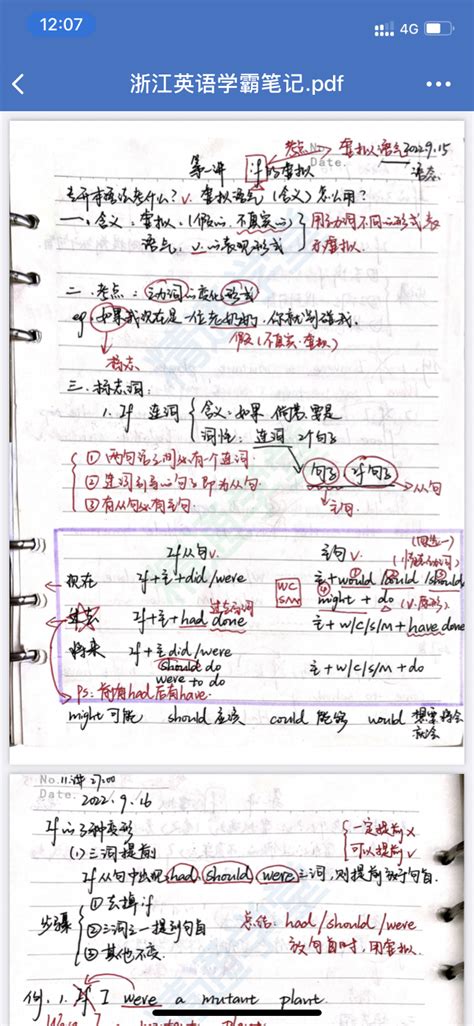 12:07 4G
浙江英语学霸笔记.pdf
考点 虚拟语气 2022.9.15
No.
Date.
第一讲 if的虚拟
专升本语法考什么? v. 虚拟语气(含义)怎么用?
一、含义:虚拟.(假的.不真实的) 用动词不同的形式表
语气. v.的表现形式 示虚拟.
二.考点:动词的变化形式
eg.如果我现在是一位老奶奶,你就别惹我.
假(不真实.虚拟)
标志
三.标志词:
1. If 连词 含义:如果 倘若 要是
词性:连词 2个句子
①两句话之间必有个连词. 句子 if句子
②连词引导的句子即为从句. 从句
③有从句必有主句. 主句
If从句v. 主句v.
现在 If+主+did/were 主+would/could/should
WC
S/M
might + do (v.原形)
过去 If+主+had done 过去分词 主+w/c/s/M+have done
将来 If+主did/were
should do 主+w/c/s/M+do
were to do
PS:前有had后有have.
might 可能 should 应该 could 能够 would 想要 将会
No.11讲 27:00
Date. 2022.9.16
If的3种变形 一定提前 x
(1)三词提前 可以提前 v
If从句中出现had, should, were三词,则提前放于句首.
步骤 ①去掉if
②三词之一提到句首 总结: had/should/were
③其他不变. 放句首时,用虚拟.
例.1. If I were a mutant plant.
Were I a mutant plant